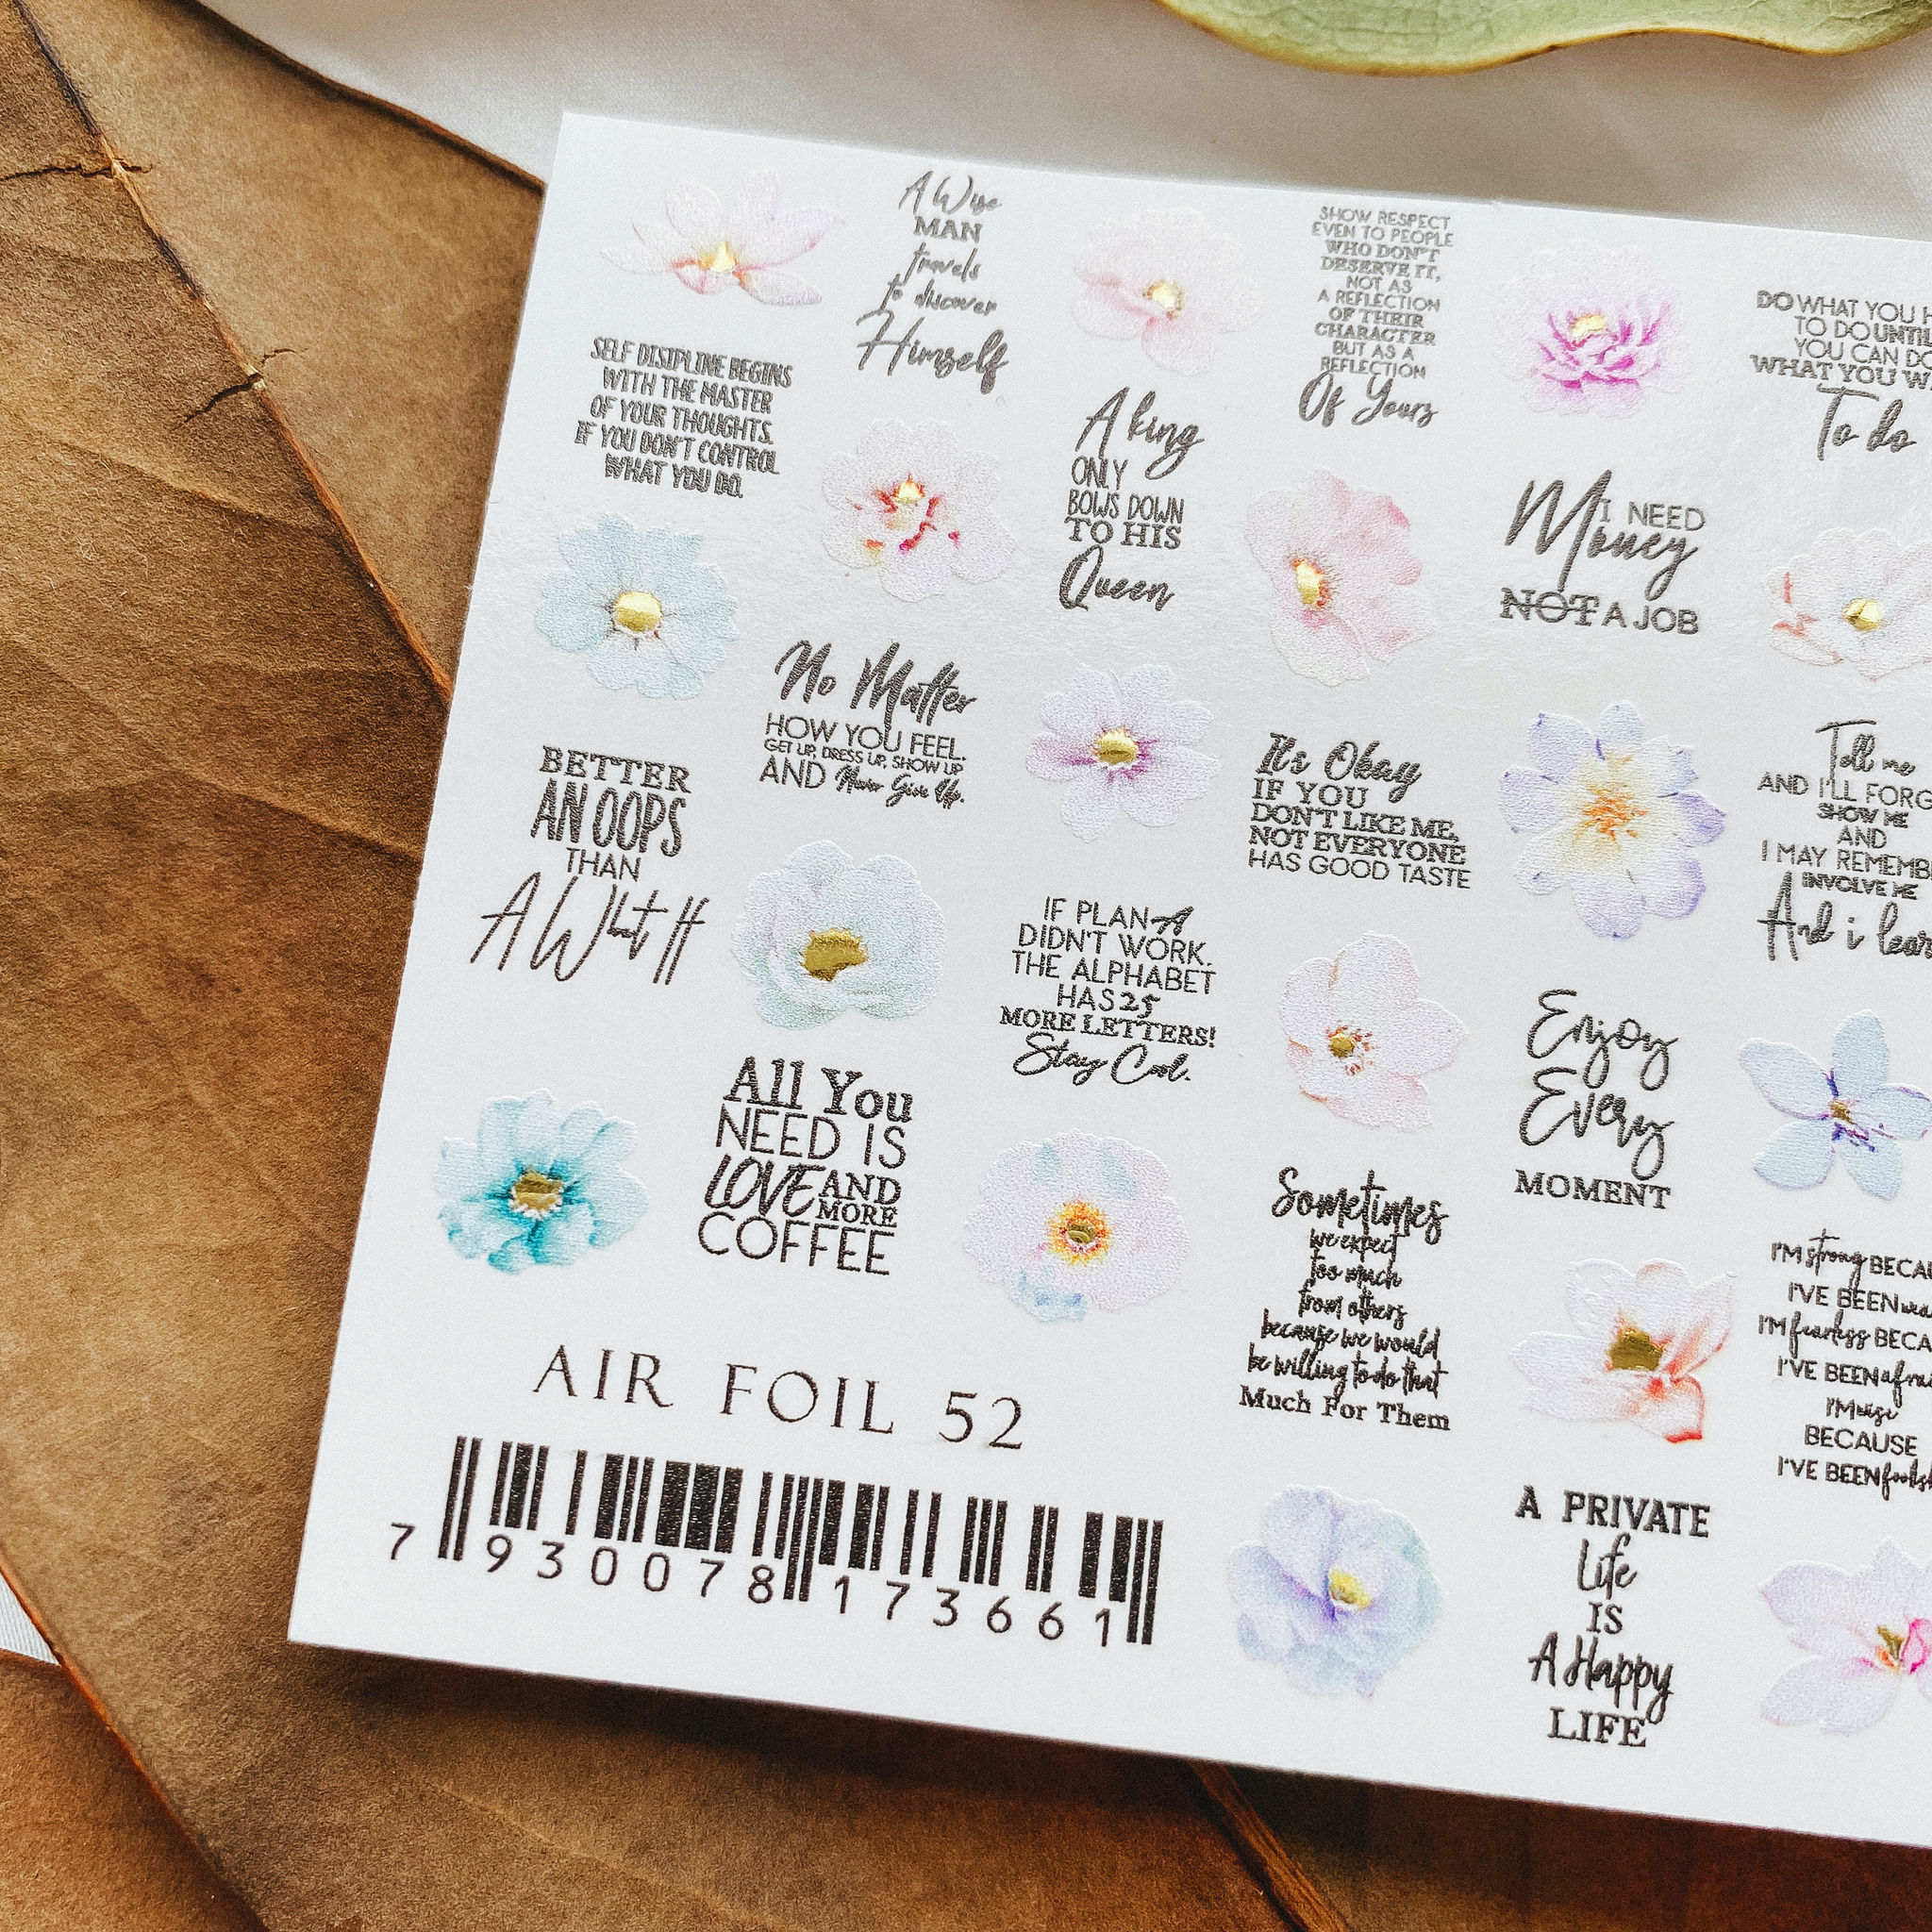 A Wise
MAN
travels
to discover
Himself
SHOW RESPECT
EVEN TO PEOPLE
WHO DON'T
DESERVE IT,
NOT AS
A REFLECTION
OF THEIR
CHARACTER
BUT AS A
REFLECTION
Of Yours
DO WHAT YOU H
TO DO UNTIL
YOU CAN DO
WHAT YOU W
To do
SELF DISIPLINE BEGINS
WITH THE MASTER
OF YOUR THOUGHTS.
IF YOU DON'T CONTROL
WHAT YOU DO.
A king
ONLY
BOWS DOWN
TO HIS
Queen
I NEED
Money
NOT A JOB
No Matter
HOW YOU FEEL.
GET UP, DRESS UP, SHOW UP
AND Never Give Up.
It's Okay
IF YOU
DON'T LIKE ME,
NOT EVERYONE
HAS GOOD TASTE
Tell me
AND I'LL FORG
SHOW ME
AND
I MAY REMEMB
INVOLVE ME
And i lear
BETTER
AN OOPS
THAN
A What If
IF PLAN A
DIDN'T WORK.
THE ALPHABET
HAS 25
MORE LETTERS!
Stay Cool.
Enjoy
Every
MOMENT
All You
NEED IS
LOVE AND
MORE
COFFEE
Sometimes
we expect
too much
from others
because we would
be willing to do that
Much For Them
I'M strong BECAU
I'VE BEEN wea
I'M fearless BECA
I'VE BEEN afrai
I'M wise
BECAUSE
I'VE BEEN foolish
A PRIVATE
Life
IS
A Happy
LIFE
AIR FOIL 52
7 930078 173661